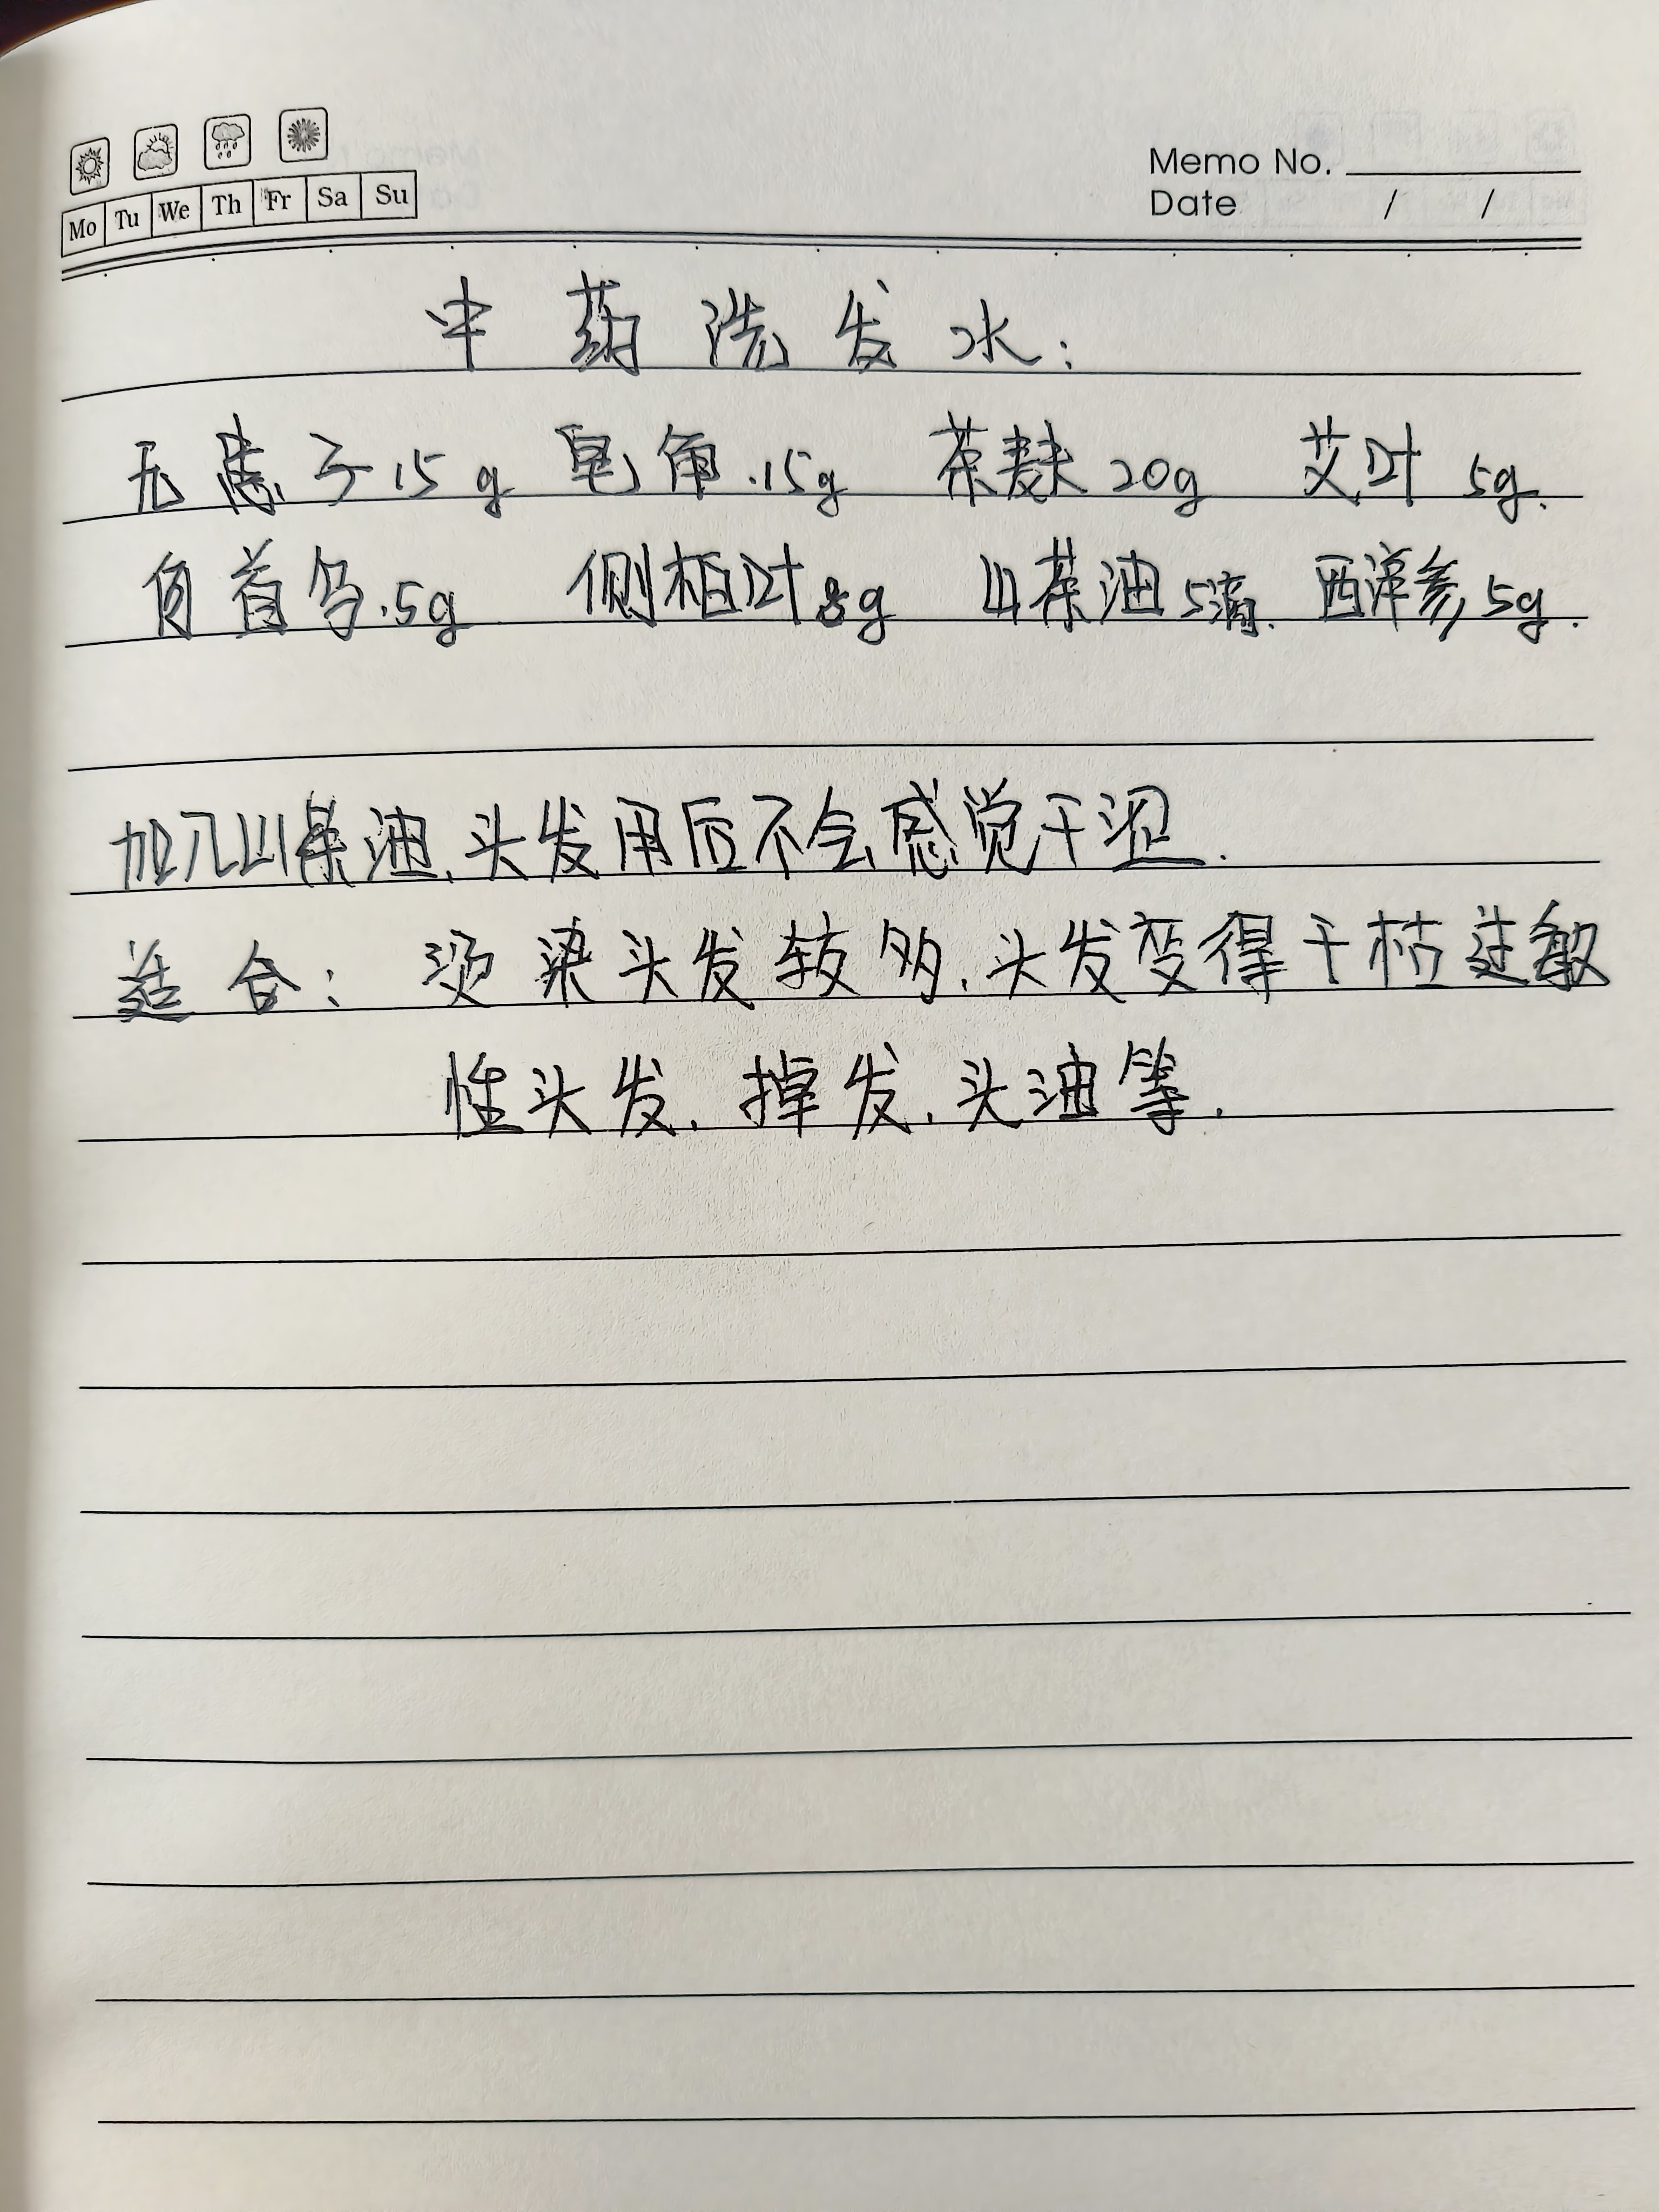 Mo Tu We Th Fr Sa Su
Memo No.
Date / /
中药洗发水:
无患子15g 皂角.15g 茶麸20g 艾叶 5g.
首乌.5g 侧柏叶8g 山茶油5滴. 西洋参5g.
加入山茶油,头发用后不会感觉干涩.
适合: 烫染头发较多,头发变得干枯过敏
性头发, 掉发, 头油等.